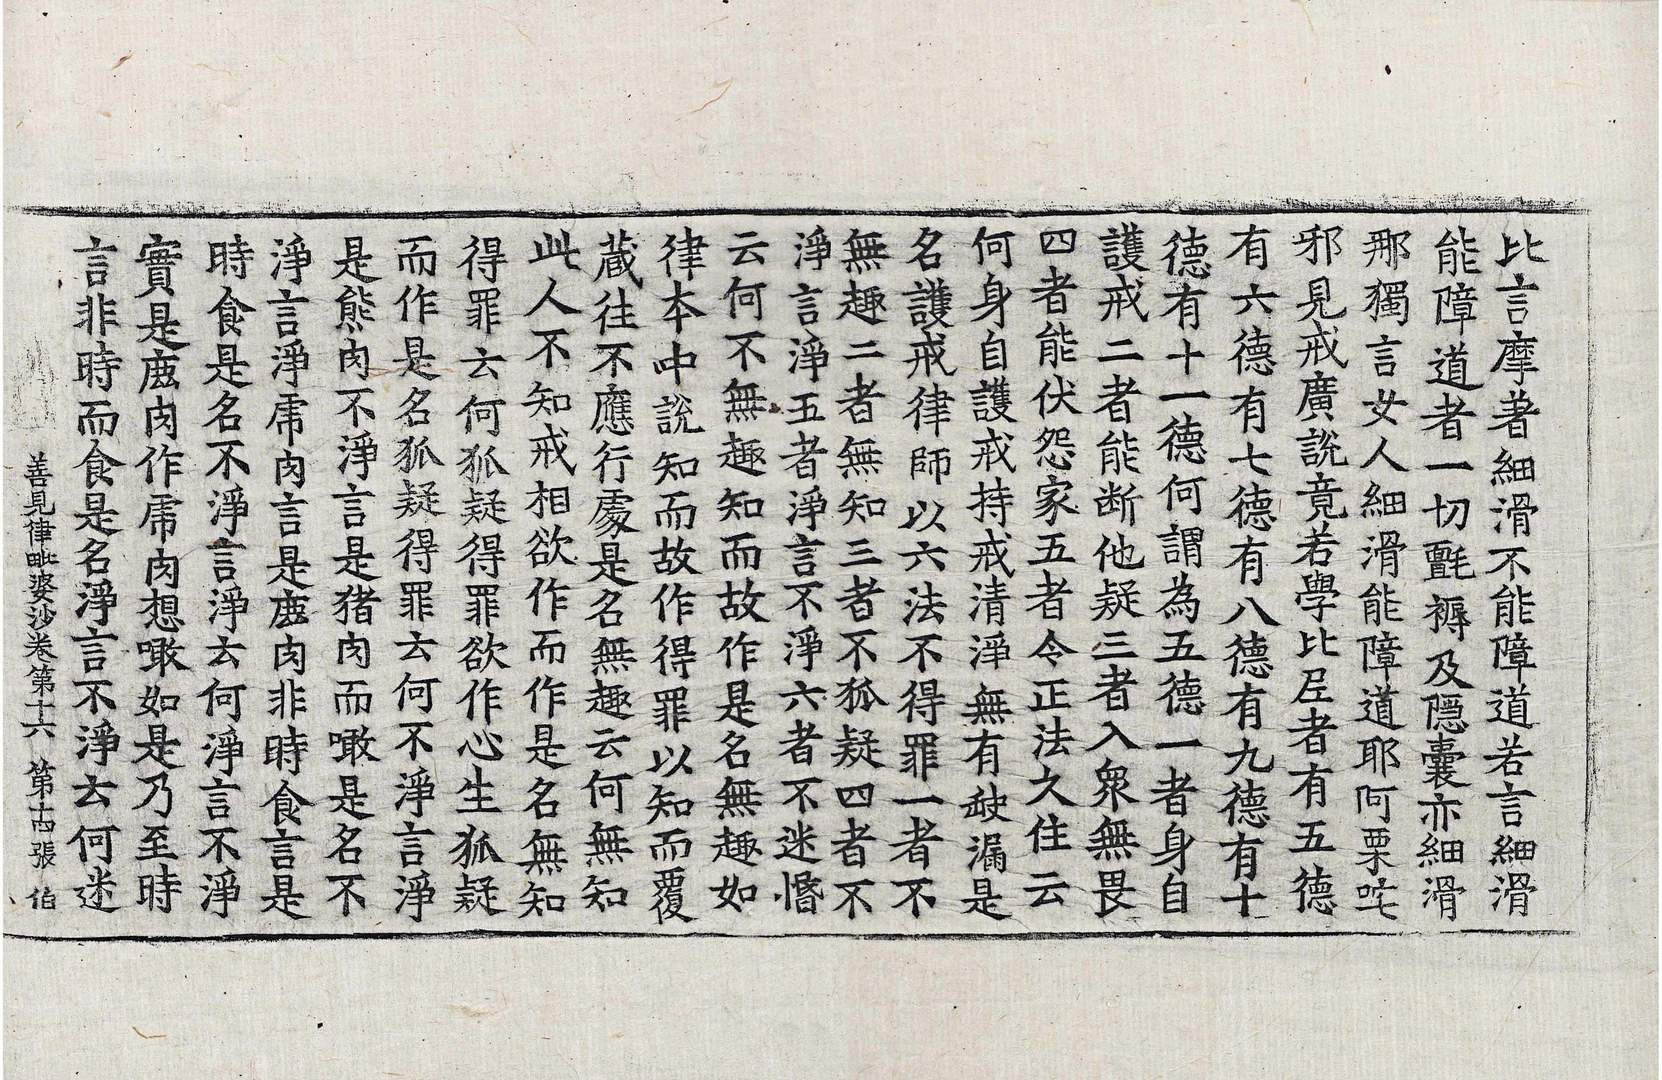 比言摩著細滑不能障道若言細滑
能障道者一切氎褥及隱囊亦細滑
那獨言女人細滑能障道耶阿栗吒
邪見戒廣說竟若學比尼者有五德
有六德有七德有八德有九德有十
德有十一德何謂為五德一者身自
護戒二者能断他疑三者入衆無畏
四者能伏怨家五者令正法久住云
何身自護戒持戒清淨無有𡙇漏是
名護戒律師以六法不得罪一者不
無趣二者無知三者不狐疑四者不
淨言淨五者淨言不淨六者不迷惛
云何不無趣知而故作是名無趣如
律本中說知而故作得罪以知而覆
蔵往不應行處是名無趣云何無知
此人不知戒相欲作而作是名無知
得罪云何狐疑得罪欲作心生狐疑
而作是名狐疑得罪云何不淨言淨
是熊肉不淨言是猪肉而噉是名不
淨言淨虎肉言是鹿肉非時食言是
時食是名不淨言淨云何淨言不淨
實是鹿肉作虎肉想噉如是乃至時
言非時而食是名淨言不淨云何迷
善見律毗婆沙卷第十六　第十四張　伯